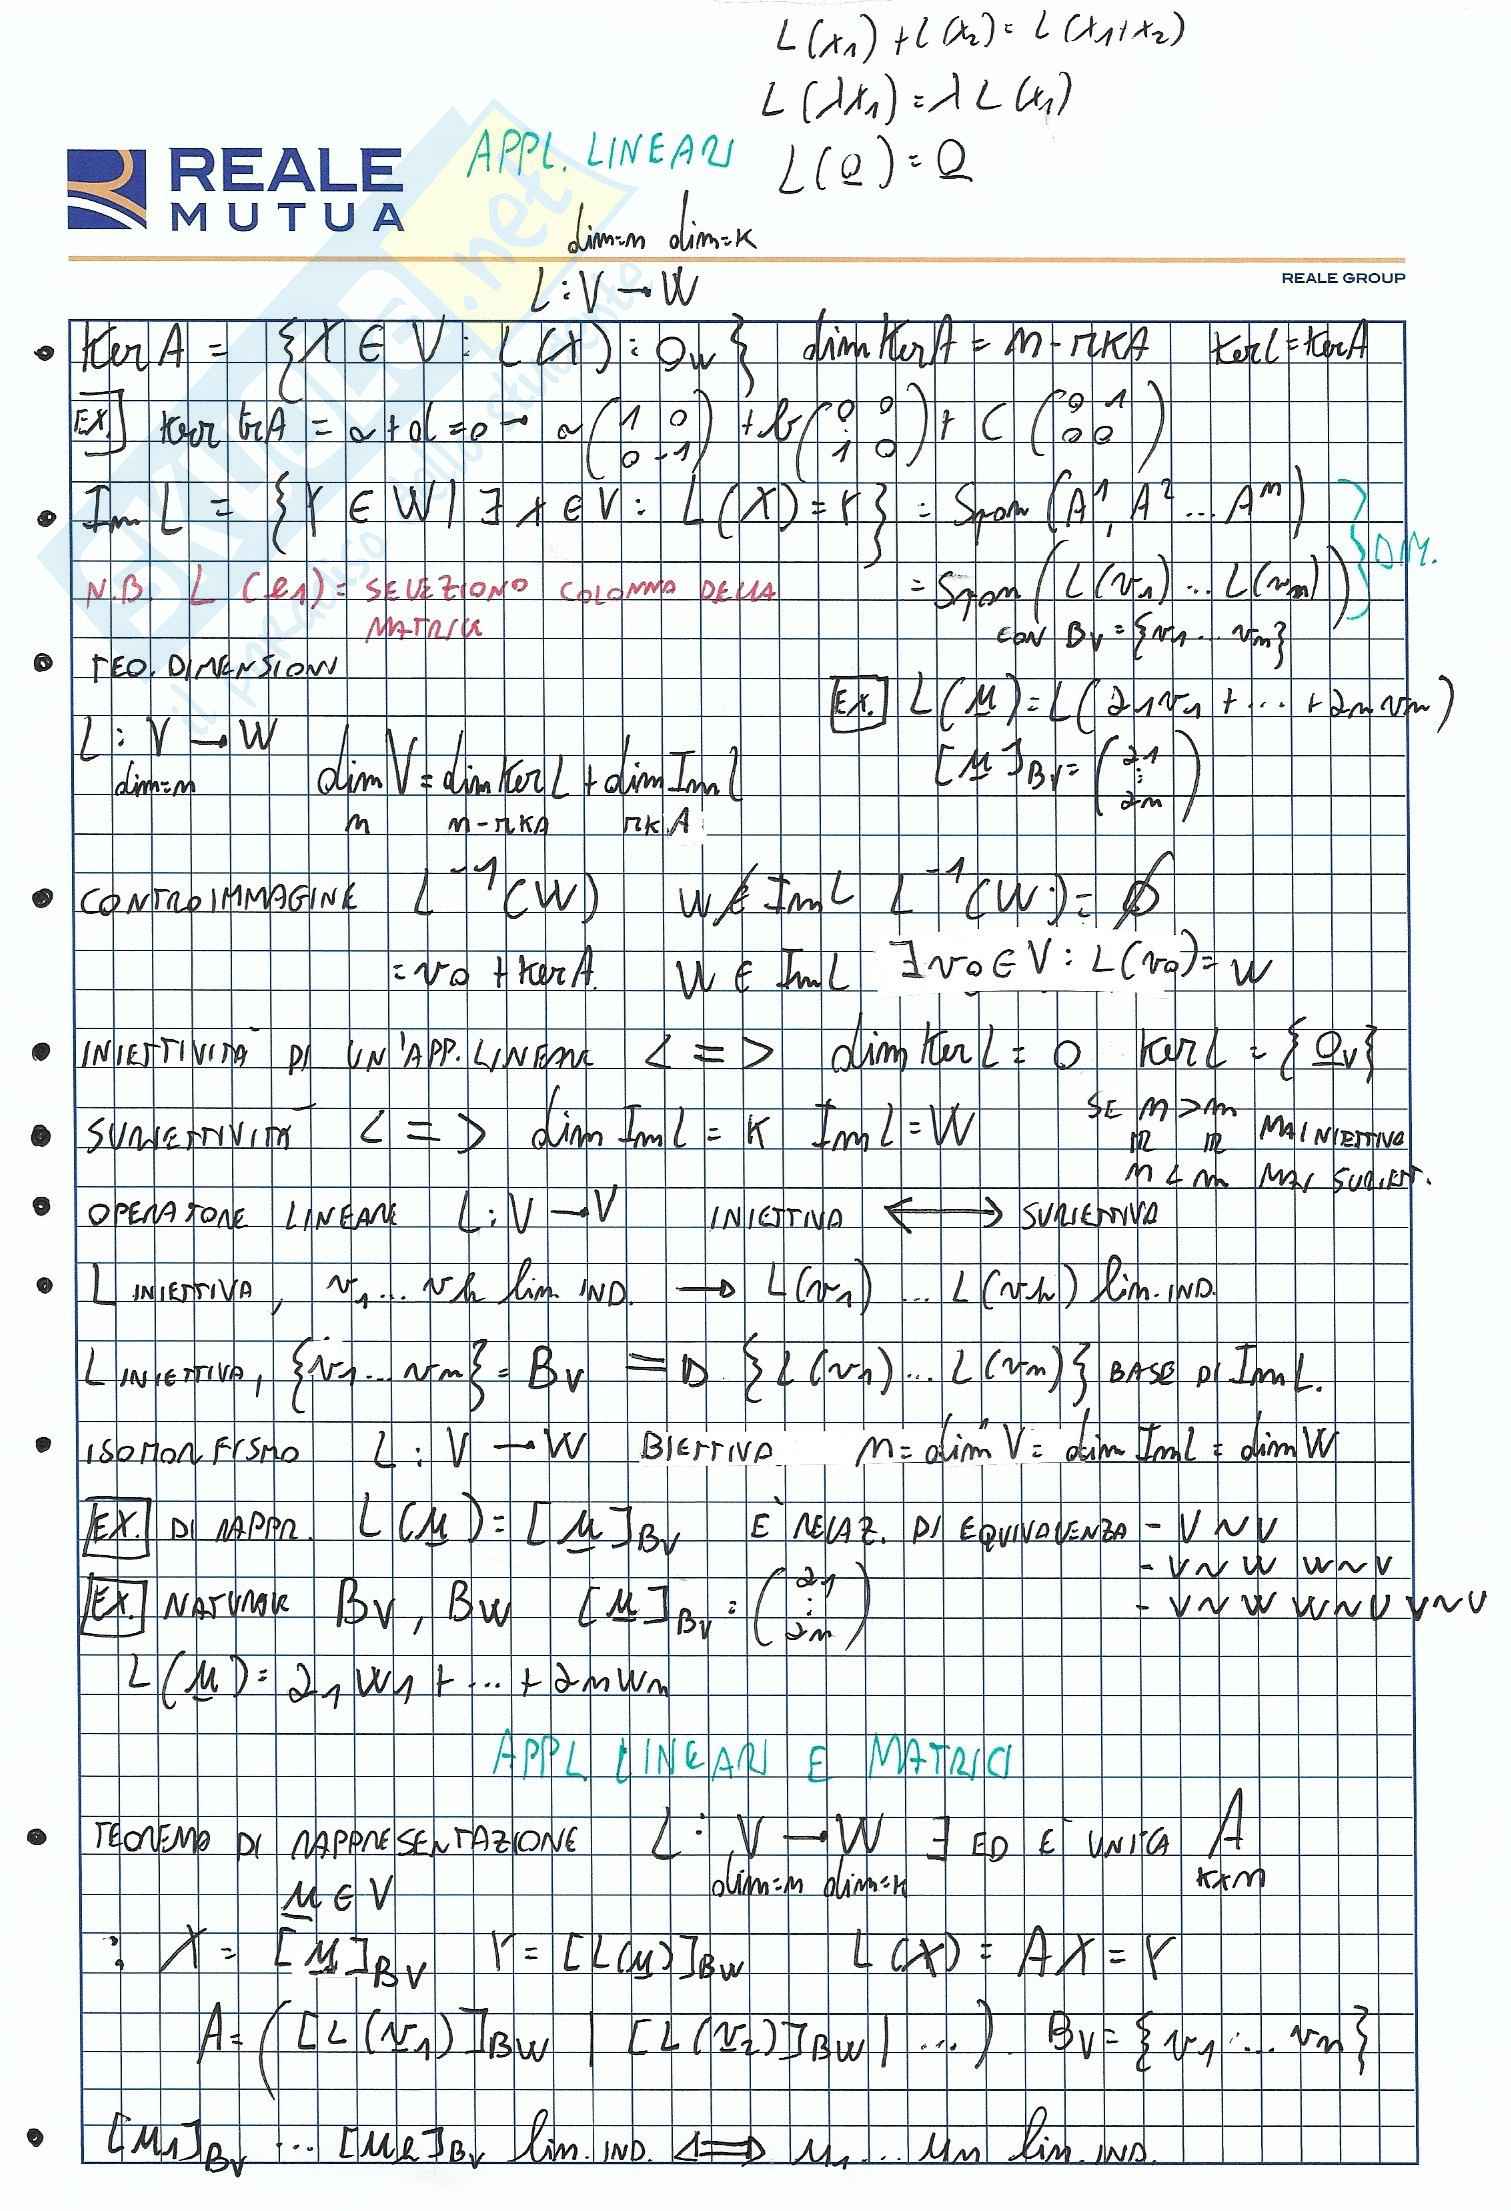 L(x₁) + L(x₂) = L(x₁+x₂)
L(λx₁) = λ L(x₁)
REALE MUTUA
APPL. LINEARI
L(0) = 0
dim=n dim=k
REALE GROUP
L : V → W
• Ker A = {X ∈ V : L(X) : 0w} dim Ker A = n - rKA Ker L = Ker A
EX.] Ker trA = a+d=0 → a(1 0 0 -1) + b(0 0 1 0) + c(0 1 0 0)
• Im L = {Y ∈ W | ∃ X ∈ V : L(X) = Y} = Span(A¹, A² ... Aⁿ) } DIM.
N.B. L(e₁) = SELEZIONO COLONNA DELLA MATRICE
= Span(L(v₁) ... L(vn))
CON Bv = {v₁ ... vn}
• TEO. DIMENSIONI
EX. L(u) = L(a₁v₁ + ... + an vn)
L : V → W
dim=n
dim V = dim Ker L + dim Im L
n n-rKA rKA
[u]Bv = (a₁ : an)
• CONTROIMMAGINE L⁻¹(W) W ∉ Im L L⁻¹(W) = ∅
= v₀ + Ker A. W ∈ Im L ∃ v₀ ∈ V : L(v₀) = W
• INIETTIVITÀ DI UN'APP. LINEARE <=> dim Ker L = 0 Ker L = {0v}
• SURIETTIVITÀ <=> dim Im L = K Im L = W
SE n > m MAI INIETTIVA
n < m MAI SURIETT.
• OPERATORE LINEARE L : V → V INIETTIVA ⟷ SURIETTIVA
• L INIETTIVA, v₁ ... vh lin. IND. → L(v₁) ... L(vh) lin. IND.
L INIETTIVA, {v₁ ... vn} = Bv ⇒ {L(v₁) ... L(vn)} BASE DI Im L.
• ISOMORFISMO L : V → W BIETTIVA n = dim V = dim Im L = dim W
EX. DI RAPPR. L(u) = [u]Bv È RELAZ. DI EQUIVALENZA - V ~ V
- V ~ W W ~ V
- V ~ W W ~ U V ~ U
EX. NATURALE Bv, Bw [u]Bv = (a₁ : an)
L(u) = a₁w₁ + ... + an wn
APPL. LINEARI E MATRICI
• TEOREMA DI RAPPRESENTAZIONE L : V → W ∃ ED È UNICA A
dim=n dim=k kxn
u ∈ V
: X = [u]Bv Y = [L(u)]Bw L(X) = AX = Y
A = ([L(v₁)]Bw | [L(v₂)]Bw | ...) Bv = {v₁ ... vn}
• [u₁]Bv ... [uR]Bv lin. IND. <=> u₁ ... un lin. IND.